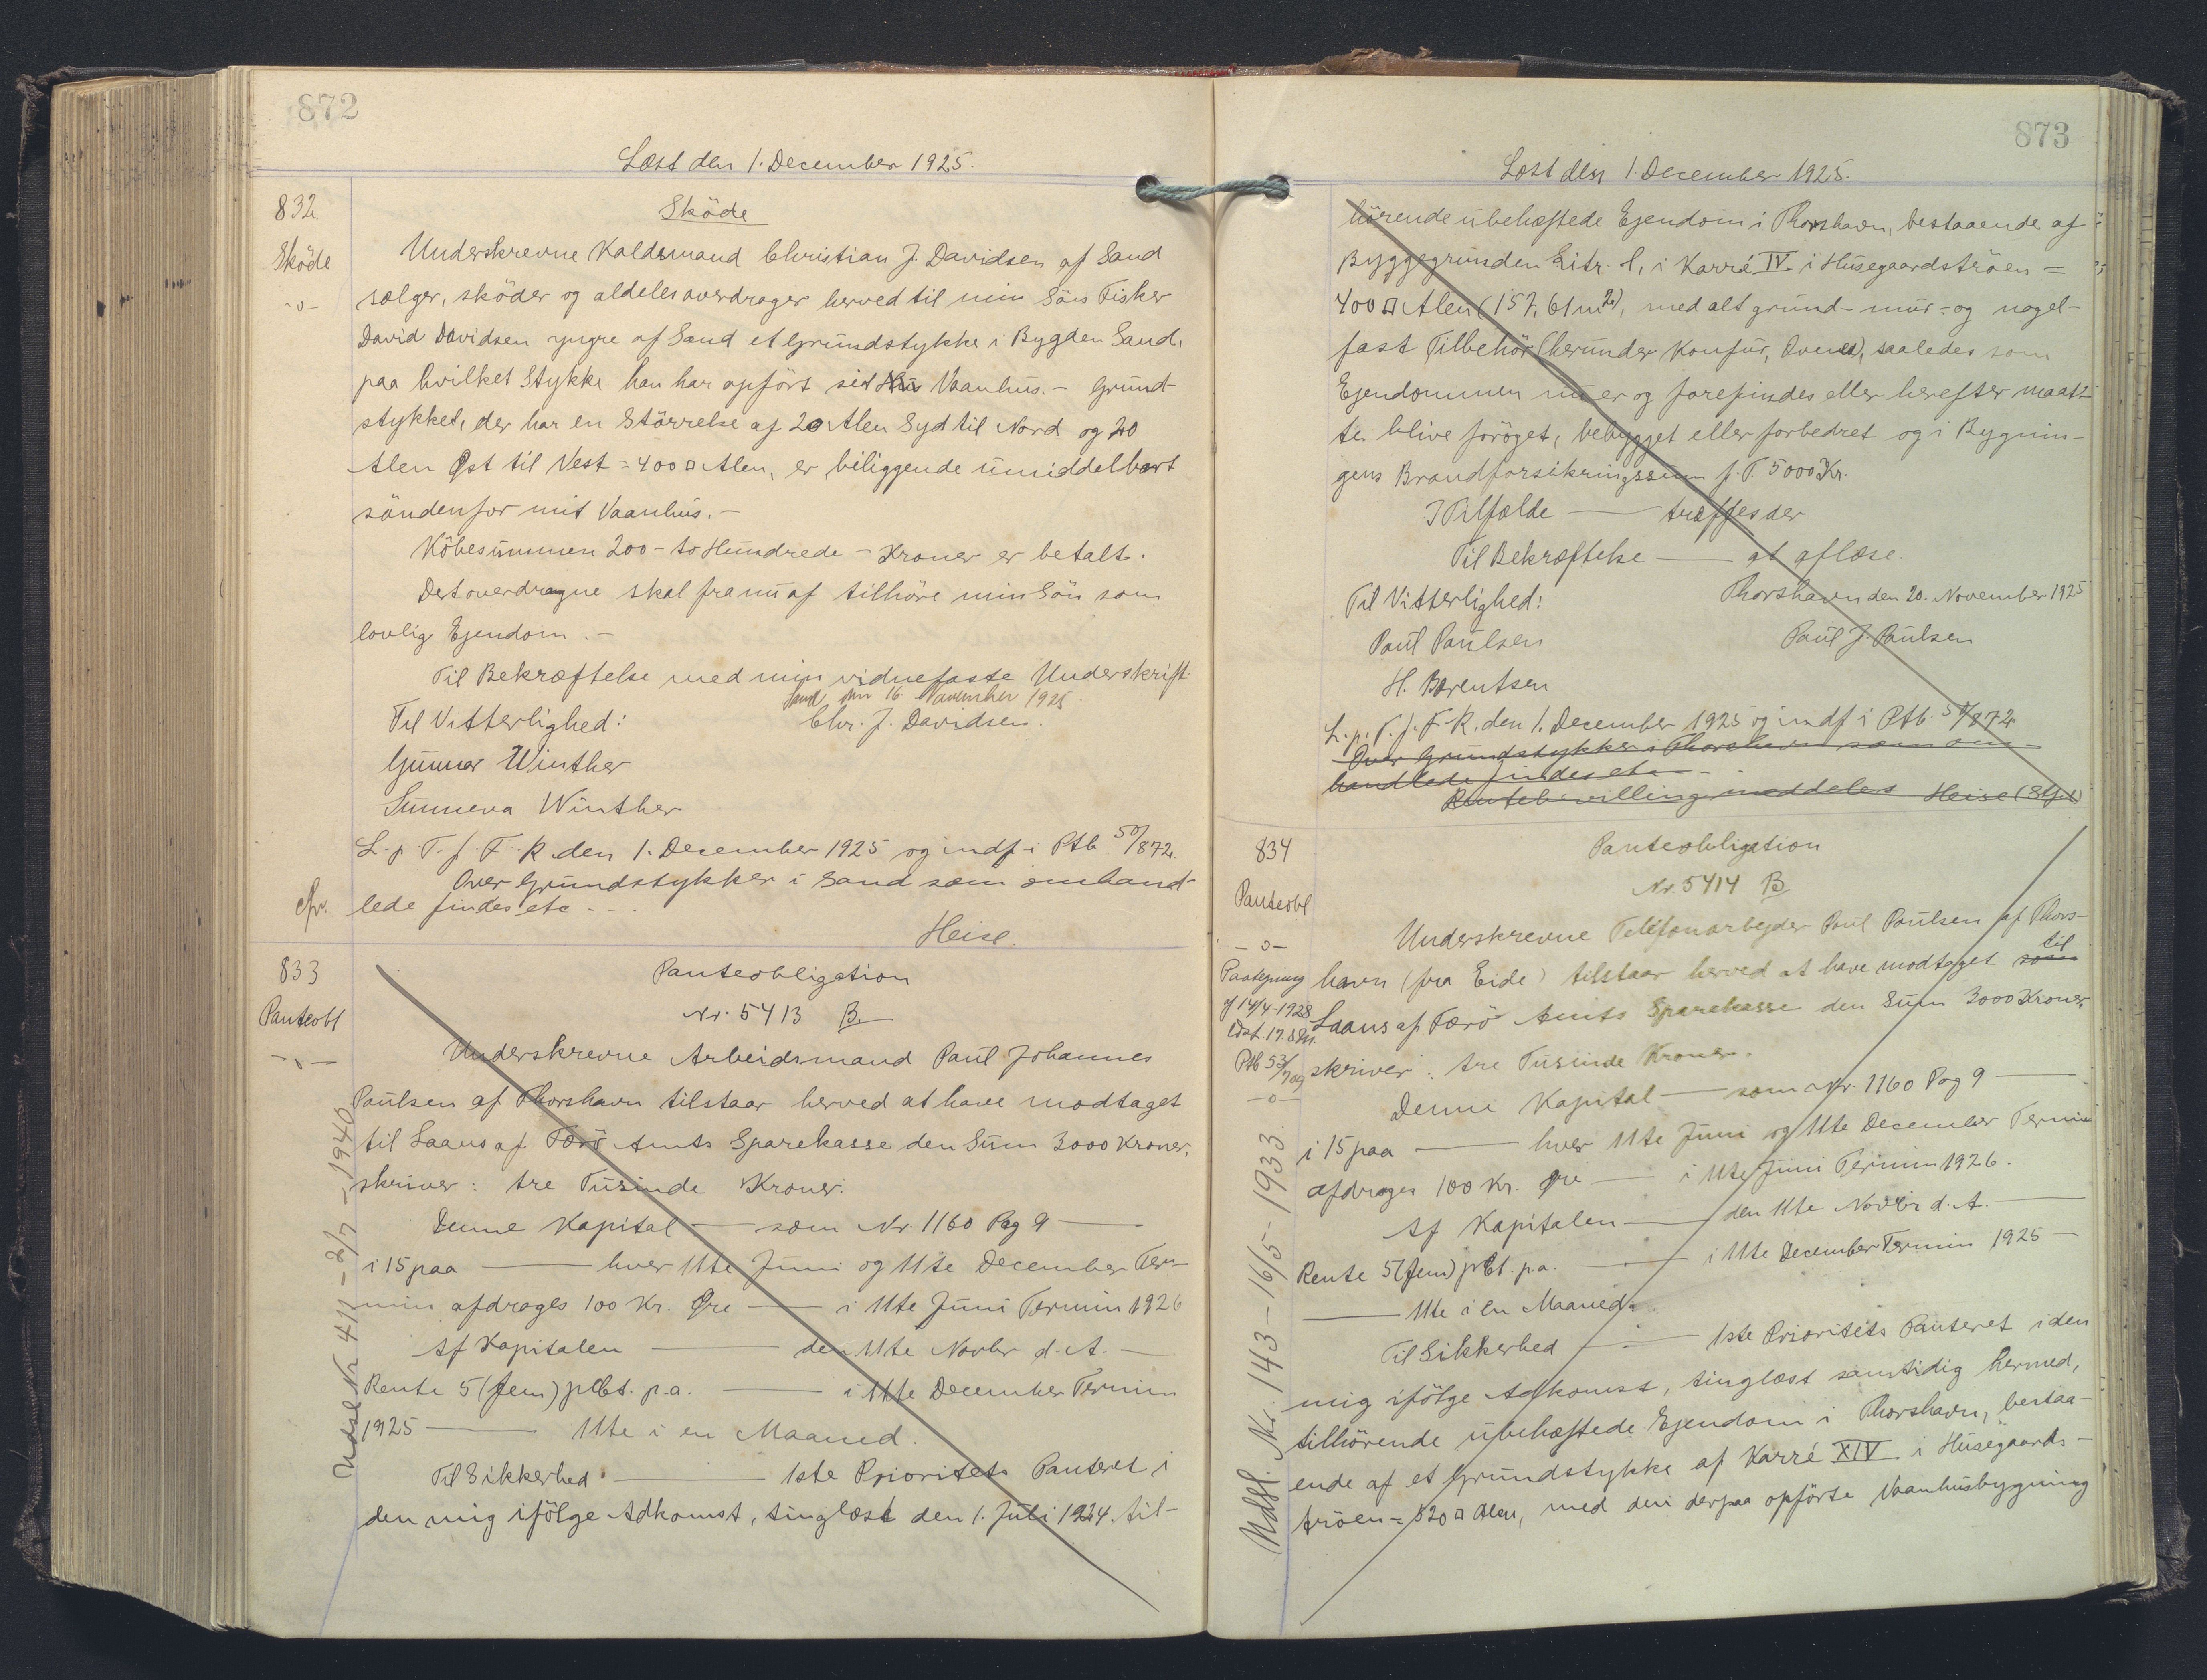 872
Læst den 1. December 1925.
832
Sköde
Sköde
-o-
Underskrevne Kaldsmand Christian J. Davidsen af Sand
sælger, sköder og aldeles overdrager herved til min Sön Fisker
David Davidsen yngre af Sand et Grundstykke i Bygden Sand,
paa hvilket Stykke han har opfört sit Vaanhus. - Grund-
stykket, der har en Störrelse af 20 Alen Syd til Nord og 20
Alen Øst til Vest = 400 □ Alen, er beliggende umiddelbart
söndenfor mit Vaanhus. -
Köbesummen 200 - to Hundrede - Kroner er betalt.
Det overdragne skal fra nu af tilhöre min Sön som
lovlig Ejendom. -
Til Bekræftelse med min vidnefaste Underskrift.
Sand den 16. November 1925.
Til Vitterlighed: Chr. J. Davidsen.
Gunnar Winther
Sunneva Winther
L. p. T. f. F. R. den 1. December 1925 og indf. i Ptb. 50/872.
Over Grundstykker i Sand som omhand-
cfr. lede findes etc - - -
Heise.
833
Panteobligation
Panteobl
-o-
Nr. 5413 B.
Underskrevne Arbeidsmand Paul Johannes
Paulsen af Thorshavn tilstaar herved at have modtaget
til Laans af Færö Amts Sparekasse den Sum 3000 Kroner,
skriver: tre Tusinde Kroner.
Denne Kapital — som Nr. 1160 Pag 9 —
i 15 paa — hver 11te Juni og 11te December Ter-
min afdrages 100 Kr. Øre — i 11te Juni Termin 1926
Af Kapitalen — den 11te Novbr d. A. —
Rente 5 (fem) pCt. p.a. — i 11te December Termin
1925 — 11te i en Maaned.
Til Sikkerhed — 1ste Prioritets Panteret i
den mig ifölge Adkomst, tinglæst den 1. Juli 1924. til-
Udsl Nr. 411 - 8/7 - 1940
873
Læst den 1. December 1925.
hörende ubehæftede Ejendom i Thorshavn, bestaaende af
Byggegrunden Litr. l, i Karré IV i Husegaardströen =
400 □ Alen (157,61 m²), med alt grund- mur- og nagel-
fast Tilbehör (herunder Komfur, Ovne), saaledes som
Ejendommen nu er og forefindes eller herefter maat-
te blive foröget, bebygget eller forbedret og i Bygnin-
gens Brandforsikringssum p. T. 5000 Kr.
I Tilfælde — træffes der
Til Bekræftelse — at aflæse.
Til Vitterlighed: Thorshavn den 20. November 1925
Paul Paulsen Paul J. Paulsen
H. Berentsen
L. p. T. f. F. R. den 1. December 1925 og indf i Ptb. 50/872
Over Grundstykker i Thorshavn som om-
handlede findes etc -
Rentebevilling meddeles Heise
834
Panteobligation
Panteobl
-o-
Nr. 5414 B
Underskrevne Telefonarbejder Paul Paulsen af Thors-
havn (fra Eide) tilstaar herved at have modtaget som til
Laans af Færö Amts Sparekasse den Sum 3000 Kroner,
skriver: tre Tusinde Kroner.
Paategning
af 14/4-1928
læst 17. s. M.
Ptb 53/709
-o-
Denne Kapital — som Nr. 1160 Pag 9 —
i 15 paa — hver 11te Juni og 11te December Termin
afdrages 100 Kr. Øre — i 11te Juni Termin 1926.
Af Kapitalen — den 11te Novbr d. A. —
Rente 5 (fem) pCt. p.a. — i 11te December Termin 1925 —
— 11te i en Maaned.
Til Sikkerhed — 1ste Prioritets Panteret i den
mig ifölge Adkomst, tinglæst samtidig hermed,
tilhörende ubehæftede Ejendom i Thorshavn, bestaa-
ende af et Grundstykke af Karré XIV i Husegaards-
tröen = 520 □ Alen, med den derpaa opförte Vaanhusbygning
Udsl. Nr. 143 - 16/5 - 1933